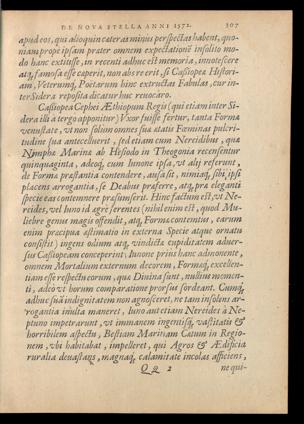 DE NOVA STELLA ANNI 1572. 307
apud eos, qui alioquin cateras minus perspectas habent, quo-
niam prope ipsam præter omnem expectationē insolito mo-
do hanc extitisse, in recenti adhuc est memoria, innotescere
atq, famosa esse cœperit, non abs re erit, si Casiopeæ Histori-
am, Veterumq, Poëtarum hinc extructas Fabulas, cur in-
ter Sidera reposita dicatur huc revocâro.
Casiopæa Cephei Æthiopum Regis (qui etiam inter Si-
dera illi à tergo apponitur) Vxor fuisse fertur, tanta Forma
venustate, vt non solum omnes sua ætatis Fœminas pulcri-
tudine sua antecelluerit, sed etiam cum Nereidibus, qua
Nimphæ Marinæ ab Hesiodo in Theogonia recensentur
quinquaginta, adeoq, cum Iunone ipsa, vt alij referunt,
de Forma præstantia contendere, ausa sit, nimiaq, sibi, ipsi
placens arrogantia, se Deabus præferre, atq, præ eleganti
specie eas contemnere præsumserit. Hinc factum est, vt Ne-
reides, vel Iuno id ægrè ferentes (nihil enim est, quod Mu-
liebre genus magis offendit, atq, Forma contemtus, earum
enim præcipua æstimatio in externa Specie atque ornatu
consistit) ingens odium atq, vindictæ cupiditatem aduer-
sus Casiopæam conceperint; Iunone prius hanc admonente,
omnem Mortalium externum decorem, Formæq, excellen-
tiam esse respectu eorum, quæ Divina sunt, nullius momen-
ti, adeo vt horum comparatione prorsus sordeant. Cumq,
adhuc suā indignitatem non agnosceret, ne tam insolens ar-
rogantia inulta maneret, Iuno aut etiam Nereides à Ne-
ptuno impetrarunt, vt immanem ingentisq, vastitatis &
horribilem aspectu, Bestiam Marinam Cætum in Regio-
nem, vbi habitabat, impelleret, qui Agros & Ædificia
ruralia deuastans, magnaq, calamitate incolas afficiens,
Qq 2 ne qui-